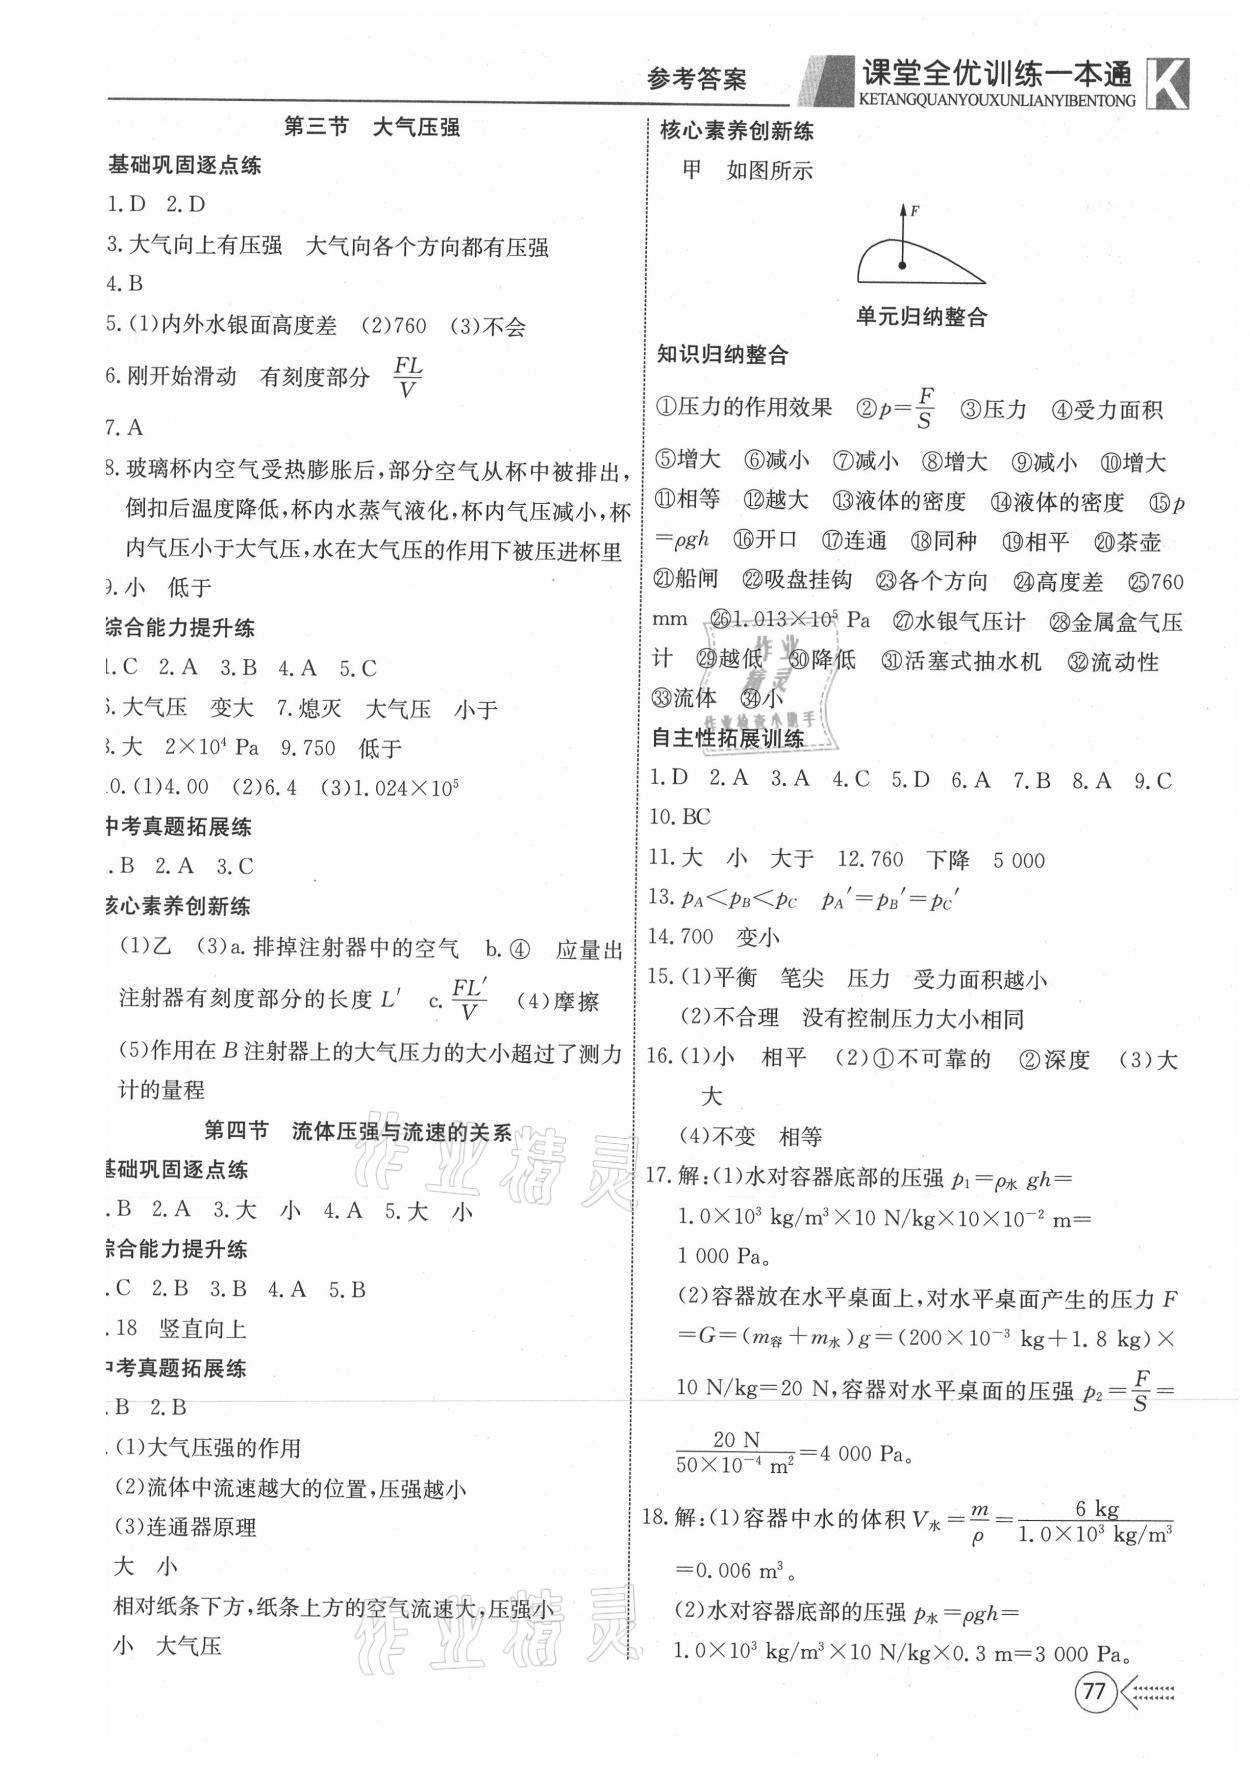 参考答案
课堂全优训练一本通
KETANGQUANYOUXUNLIANYIBENTONG
K
第三节 大气压强
基础巩固逐点练
1.D 2.D
3.大气向上有压强 大气向各个方向都有压强
4.B
5.(1)内外水银面高度差 (2)760 (3)不会
6.刚开始滑动 有刻度部分 FL/V
7.A
8.玻璃杯内空气受热膨胀后,部分空气从杯中被排出,
倒扣后温度降低,杯内水蒸气液化,杯内气压减小,杯
内气压小于大气压,水在大气压的作用下被压进杯里
9.小 低于
综合能力提升练
1.C 2.A 3.B 4.A 5.C
6.大气压 变大 7.熄灭 大气压 小于
8.大 2×10⁴ Pa 9.750 低于
10.(1)4.00 (2)6.4 (3)1.024×10⁵
中考真题拓展练
.B 2.A 3.C
核心素养创新练
(1)乙 (3)a.排掉注射器中的空气 b.④ 应量出
注射器有刻度部分的长度 L′ c. FL′/V (4)摩擦
(5)作用在 B 注射器上的大气压力的大小超过了测力
计的量程
第四节 流体压强与流速的关系
基础巩固逐点练
.B 2.A 3.大 小 4.A 5.大 小
综合能力提升练
.C 2.B 3.B 4.A 5.B
.18 竖直向上
中考真题拓展练
.B 2.B
.(1)大气压强的作用
(2)流体中流速越大的位置,压强越小
(3)连通器原理
大 小
相对纸条下方,纸条上方的空气流速大,压强小
小 大气压
核心素养创新练
甲 如图所示
F
单元归纳整合
知识归纳整合
①压力的作用效果 ②p=F/S ③压力 ④受力面积
⑤增大 ⑥减小 ⑦减小 ⑧增大 ⑨减小 ⑩增大
⑪相等 ⑫越大 ⑬液体的密度 ⑭液体的密度 ⑮p
=ρgh ⑯开口 ⑰连通 ⑱同种 ⑲相平 ⑳茶壶
㉑船闸 ㉒吸盘挂钩 ㉓各个方向 ㉔高度差 ㉕760
mm ㉖1.013×10⁵ Pa ㉗水银气压计 ㉘金属盒气压
计 ㉙越低 ㉚降低 ㉛活塞式抽水机 ㉜流动性
㉝流体 ㉞小
自主性拓展训练
1.D 2.A 3.A 4.C 5.D 6.A 7.B 8.A 9.C
10.BC
11.大 小 大于 12.760 下降 5 000
13.p_A<p_B<p_C p_A′=p_B′=p_C′
14.700 变小
15.(1)平衡 笔尖 压力 受力面积越小
(2)不合理 没有控制压力大小相同
16.(1)小 相平 (2)①不可靠的 ②深度 (3)大
大
(4)不变 相等
17.解:(1)水对容器底部的压强 p₁=ρ水 gh=
1.0×10³ kg/m³×10 N/kg×10×10⁻² m=
1 000 Pa。
(2)容器放在水平桌面上,对水平桌面产生的压力 F
=G=(m容+m水)g=(200×10⁻³ kg+1.8 kg)×
10 N/kg=20 N,容器对水平桌面的压强 p₂=F/S=
20 N/50×10⁻⁴ m²=4 000 Pa。
18.解:(1)容器中水的体积 V水=m/ρ=6 kg/1.0×10³ kg/m³
=0.006 m³。
(2)水对容器底部的压强 p水=ρgh=
1.0×10³ kg/m³×10 N/kg×0.3 m=3 000 Pa。
77
作业精灵
作业检查小助手
作业精灵
作业精灵